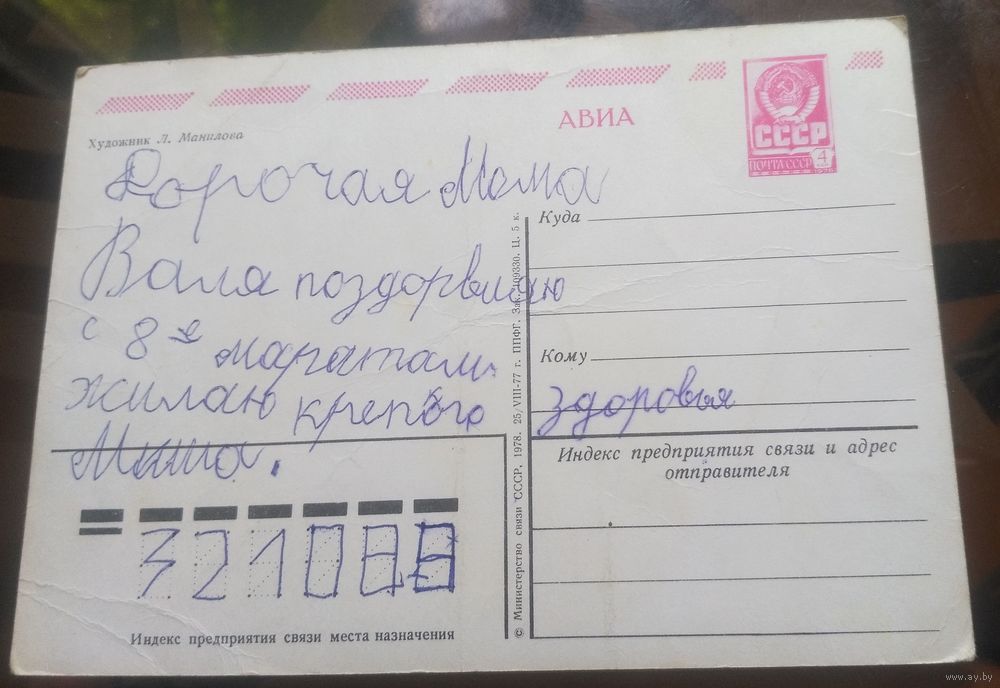 АВИА
СССР
ПОЧТА СССР 4
1978
Художник Л. Манилова
Дорочая Мама
Валя поздорвляю
с 8 е маратам.
жилаю крепкого здоровья
Миша.
Куда
Кому
Индекс предприятия связи и адрес
отправителя
© Министерство связи СССР, 1978. 25/VIII-77 г. ППФГ. Зак. 109330. Ц. 5 к.
Индекс предприятия связи места назначения
www.ay.by